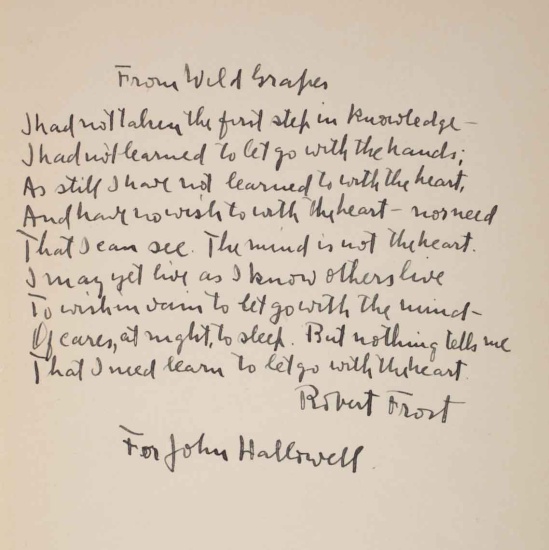 From Wild Grapes
I had not taken the first step in knowledge –
I had not learned to let go with the hands;
As still I have not learned to with the heart,
And have no wish to with the heart – nor need
That I can see. The mind is not the heart.
I may yet live as I know others live
To wish in vain to let go with the mind –
Of cares, at night, to sleep. But nothing tells me
That I need learn to let go with the heart.
Robert Frost
For John Hallowell